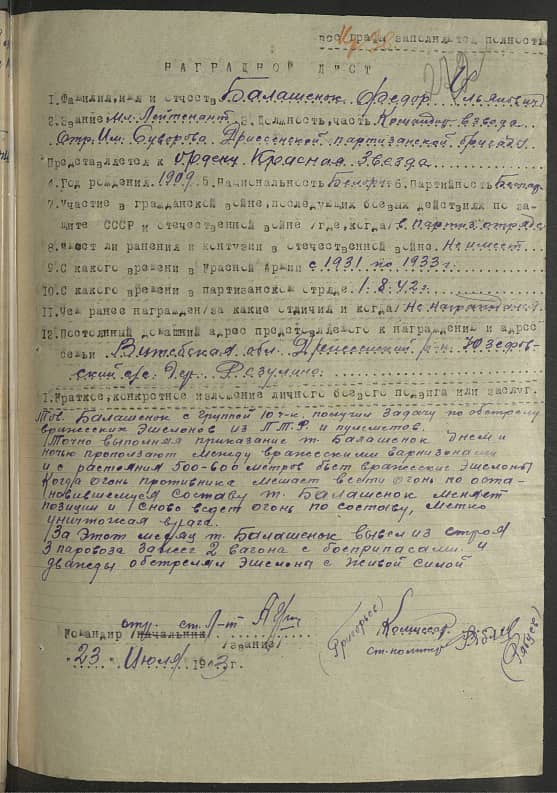 все графы заполняются полностью
НАГРАДНОЙ ЛИСТ
1. Фамилия, имя и отчество Балашенок Федор Ильянович
2. Звание мл. Лейтенант 3. Должность, часть Командир взвода
Отр. Им. Суворова Дриссенской партизанской бригады
Представляется к ордену Красная Звезда
4. Год рождения 1909 5. Национальность Белорус 6. Партийность
7. Участие в гражданской войне, последующих боевых действиях по за-
щите СССР и отечественной войне /где, когда/ в партиз. отряде
8. Имеет ли ранения и контузии в отечественной войне. Не имеет
9. С какого времени в Красной Армии с 1931 по 1933 г.
10. С какого времени в партизанском отряде 1.8.42 г.
11. Чем ранее награжден /за какие отличия и когда/ Не награждался
12. Постоянный домашний адрес представляемого к награждению и адрес
семьи Витебская обл. Дриссенский р-н Юзефов-
ский с/с дер. Розулино
I. Краткое, конкретное изложение личного боевого подвига или заслуг.
Тов. Балашенок с группой 10 ч-к. получил задачу по обстрелу
вражеских эшелонов из П.Т.Р. и пулеметов.
Точно выполняя приказание т. Балашенок днем и
ночью проползают между вражескими гарнизонами
и с растояния 500-600 метров бьет вражеские эшелоны
Когда огонь противника мешает вести огонь по оста-
новившемуся составу т. Балашенок меняет
позиции и снова ведет огонь по составу, метко
уничтожая врага.
За этот месяц т. Балашенок вывел из строя
3 паровоза зажег 2 вагона с боеприпасами и
дважды обстрелял эшелоны с живой силой
отр. ст. л-т
Командир /начальник/
/звание/
(Григорьев)
Комиссар
ст. политр.
(Рябцев)
"23" Июля 1943 г.